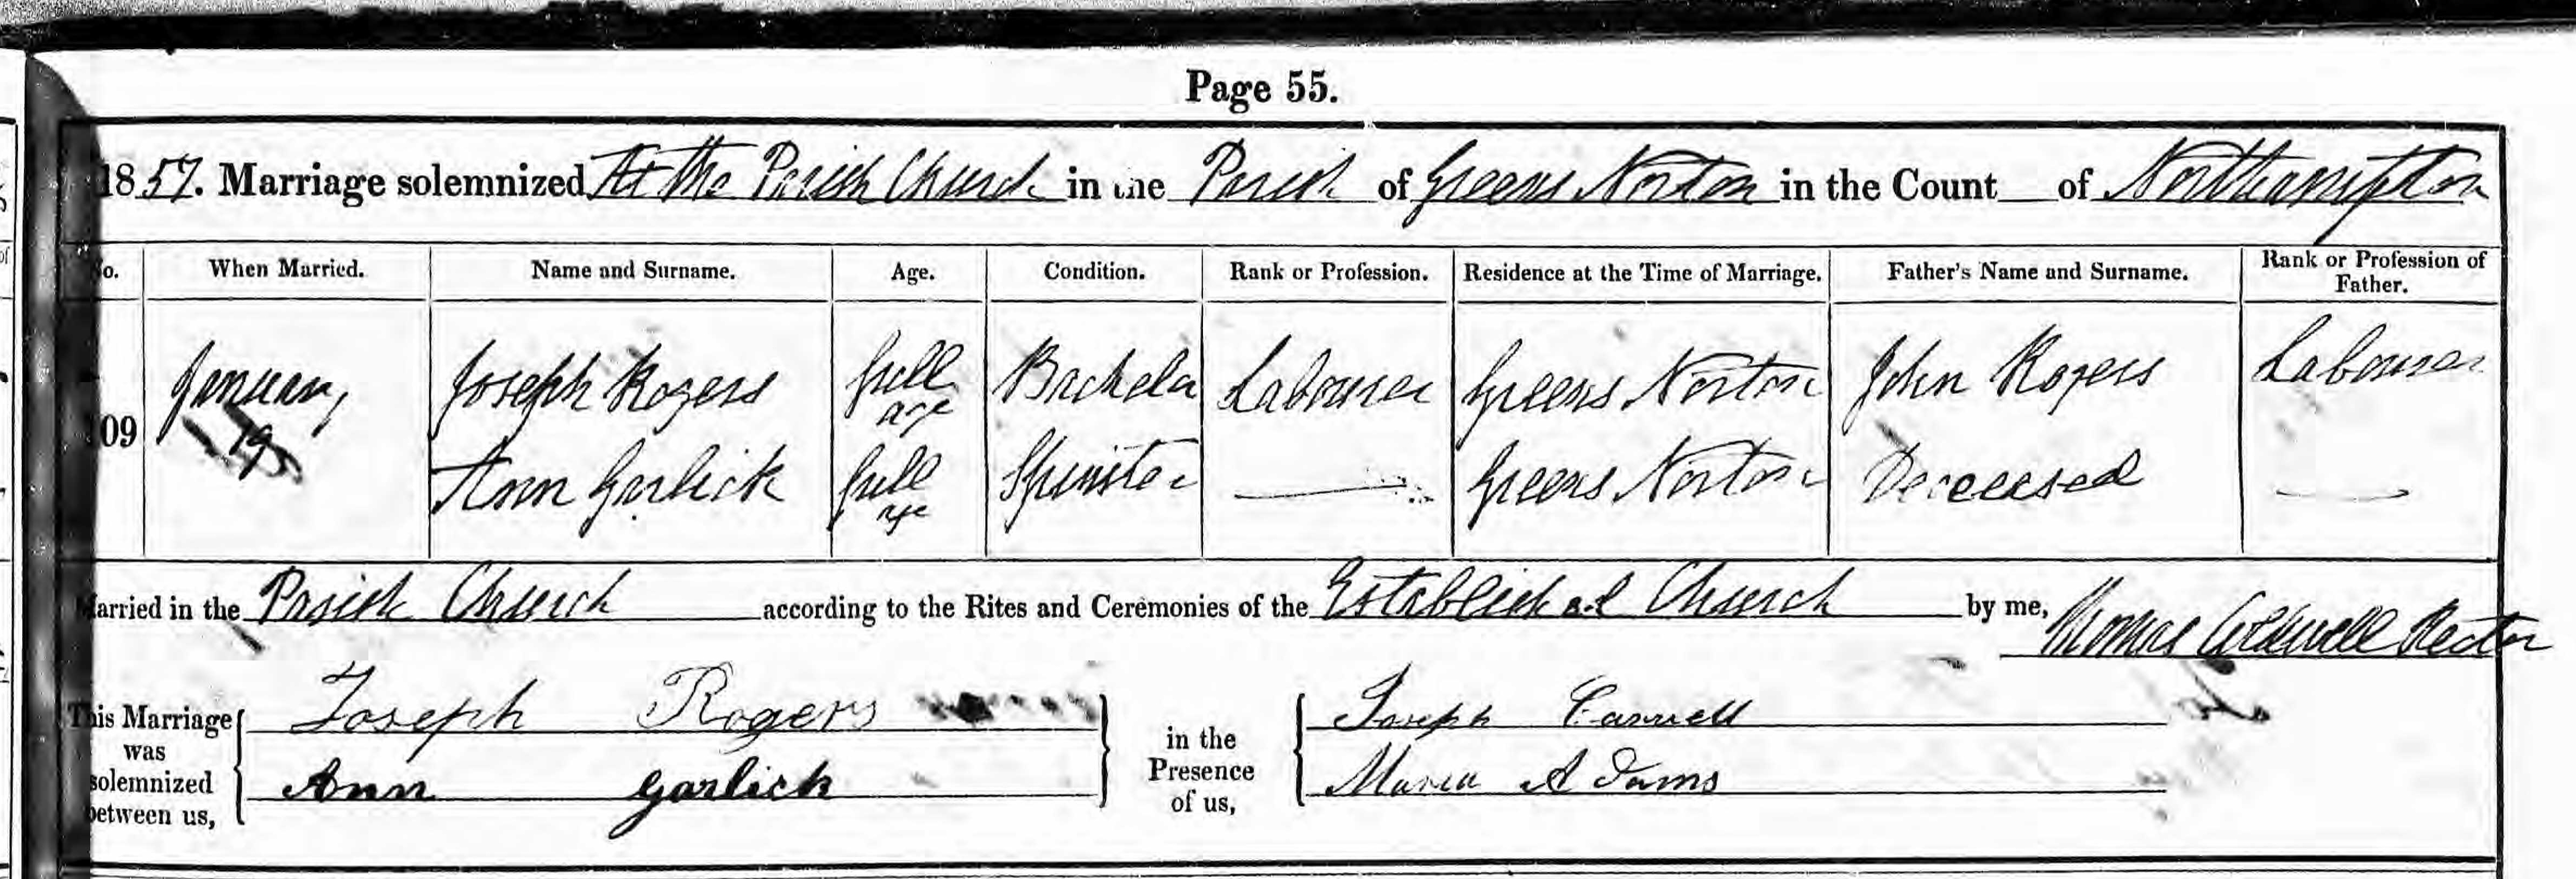 Page 55.
1857. Marriage solemnized At the Parish Church in the Parish of Greens Norton in the Count of Northampton
No. When Married. Name and Surname. Age. Condition. Rank or Profession. Residence at the Time of Marriage. Father's Name and Surname. Rank or Profession of Father.
09 January 19 Joseph Rogers full age Bachelor Labourer Greens Norton John Rogers Labourer
Ann Garlick full age Spinster Greens Norton Deceased
Married in the Parish Church according to the Rites and Ceremonies of the Established Church by me, Thomas Rector
This Marriage was solemnized between us, Joseph Rogers
Ann Garlick
in the Presence of us, Joseph
Maria Adams